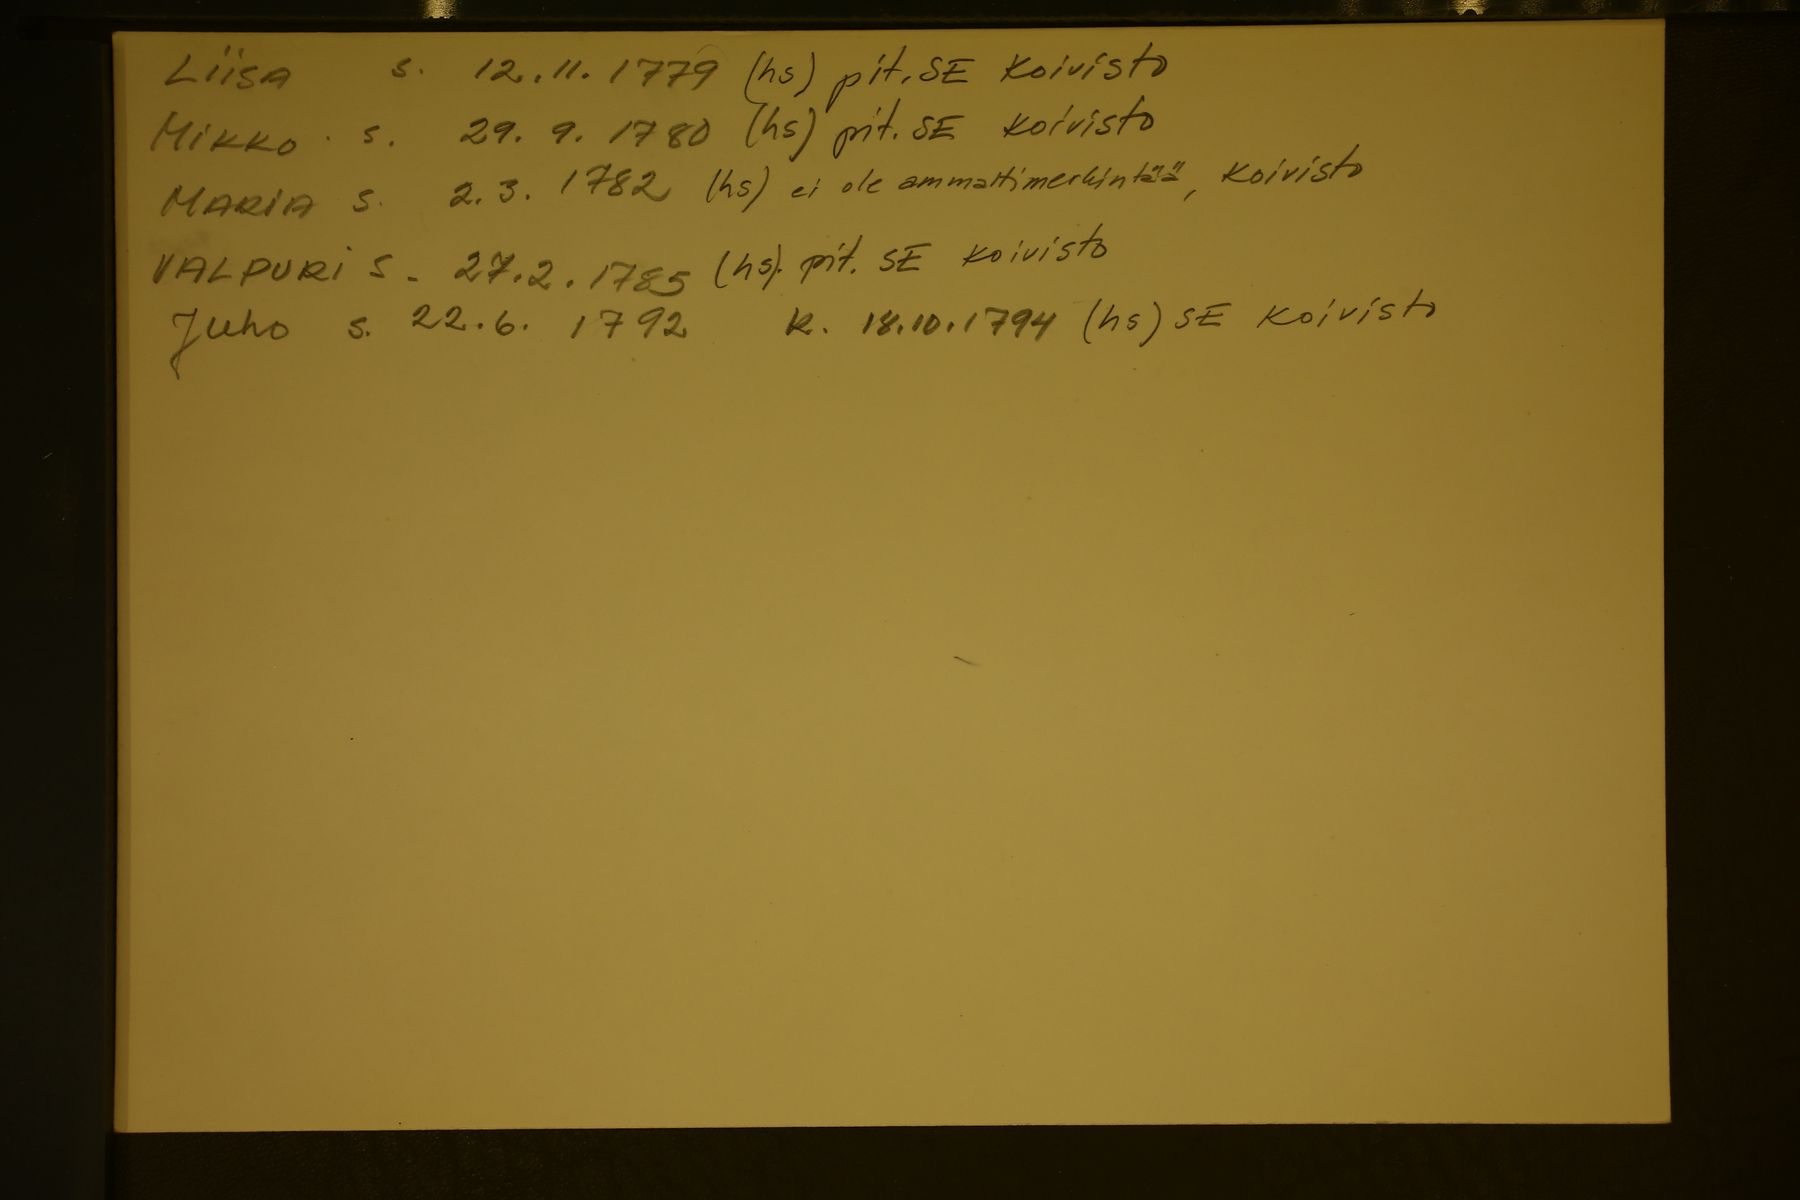 LiiSA s. 12.11.1779 (hs) pit. SE Koivisto
MiKKO s. 29.9.1780 (hs) pit. SE Koivisto
MARiA s. 2.3.1782 (hs) ei ole ammattimerkintää, Koivisto
VALPURi s. 27.2.1785 (hs). pit. SE Koivisto
Juho s. 22.6.1792 k. 18.10.1794 (hs) SE Koivisto